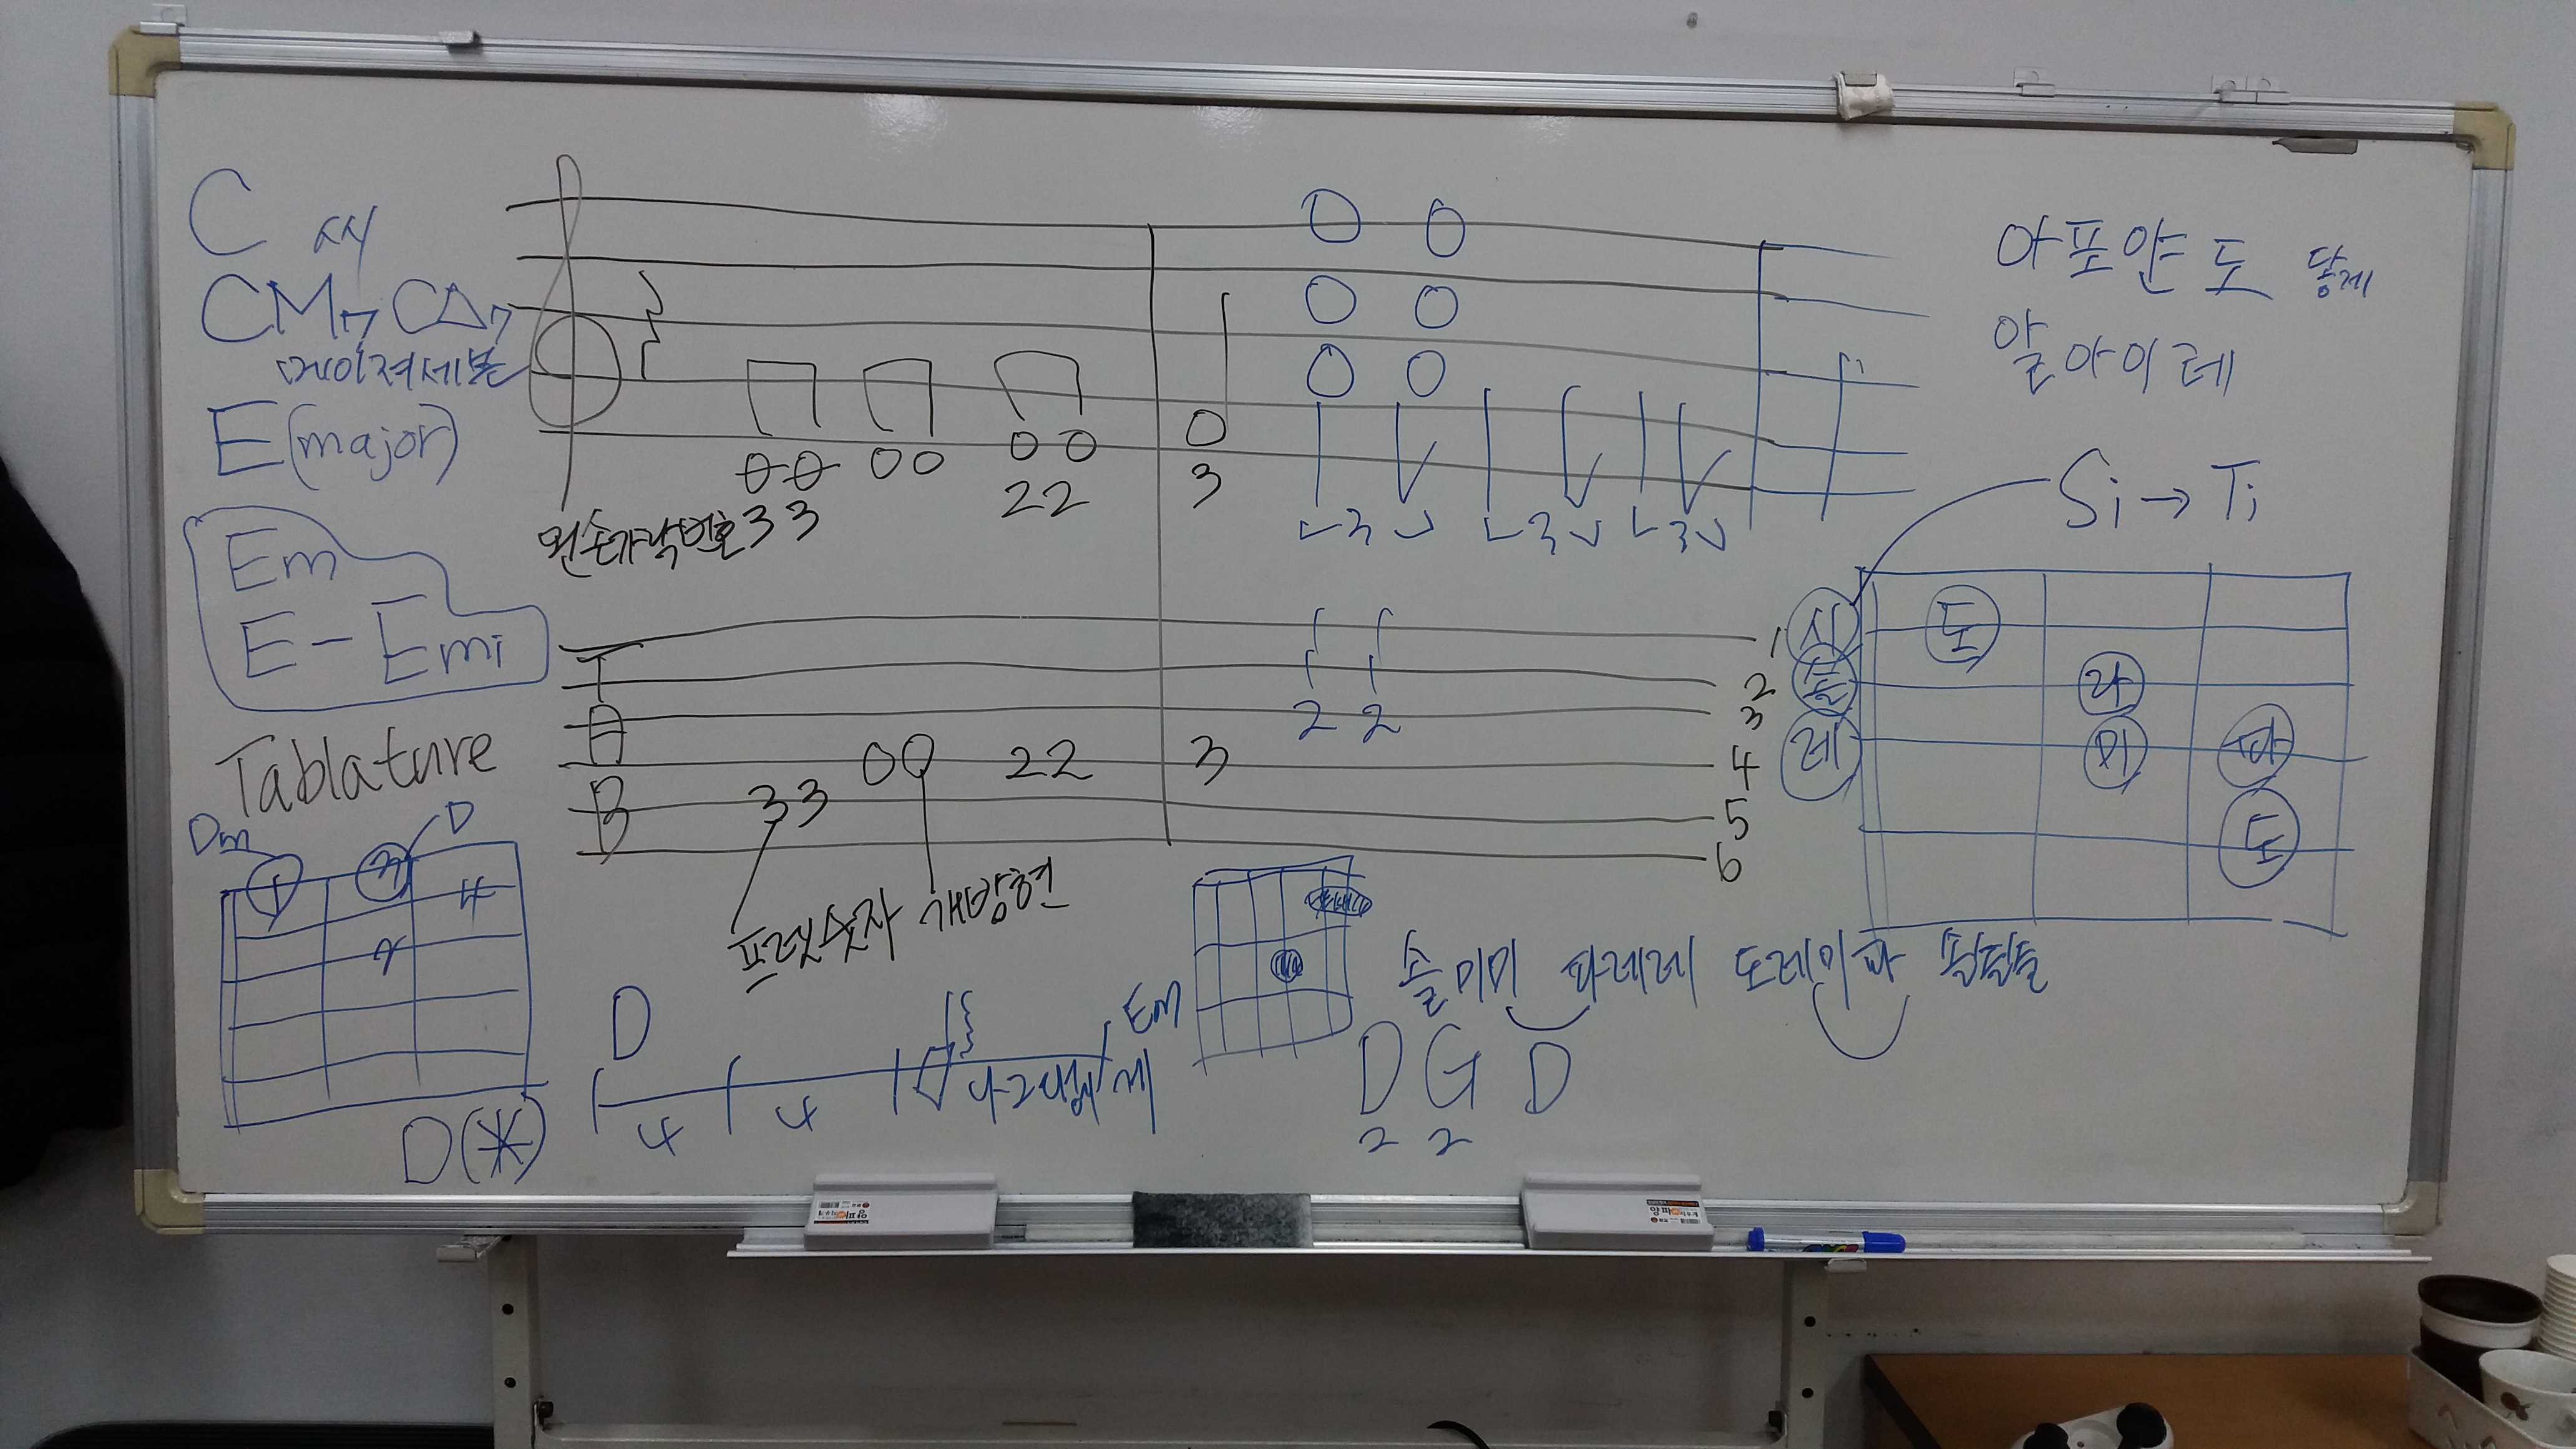 C 씨
CM7 C△7
메이져세븐
E(major)
Em
E- Emi
Tablature
Dm D
1
4
D(*)
왼손가락번호 3 3
0 0
2 2
0
3
3 3 3
T
A
B
3 3
0 0
2 2
3
1 1
1 1
2 2
1
2
3
4
5
6
프렛숫자 개방현
D
4 4
Em
아포얀도 닿게
알아이레
Si → Ti
시 도
솔 라
레 미 파
도
솔미미 파레레 도레미파 솔솔솔
D G D
2 2